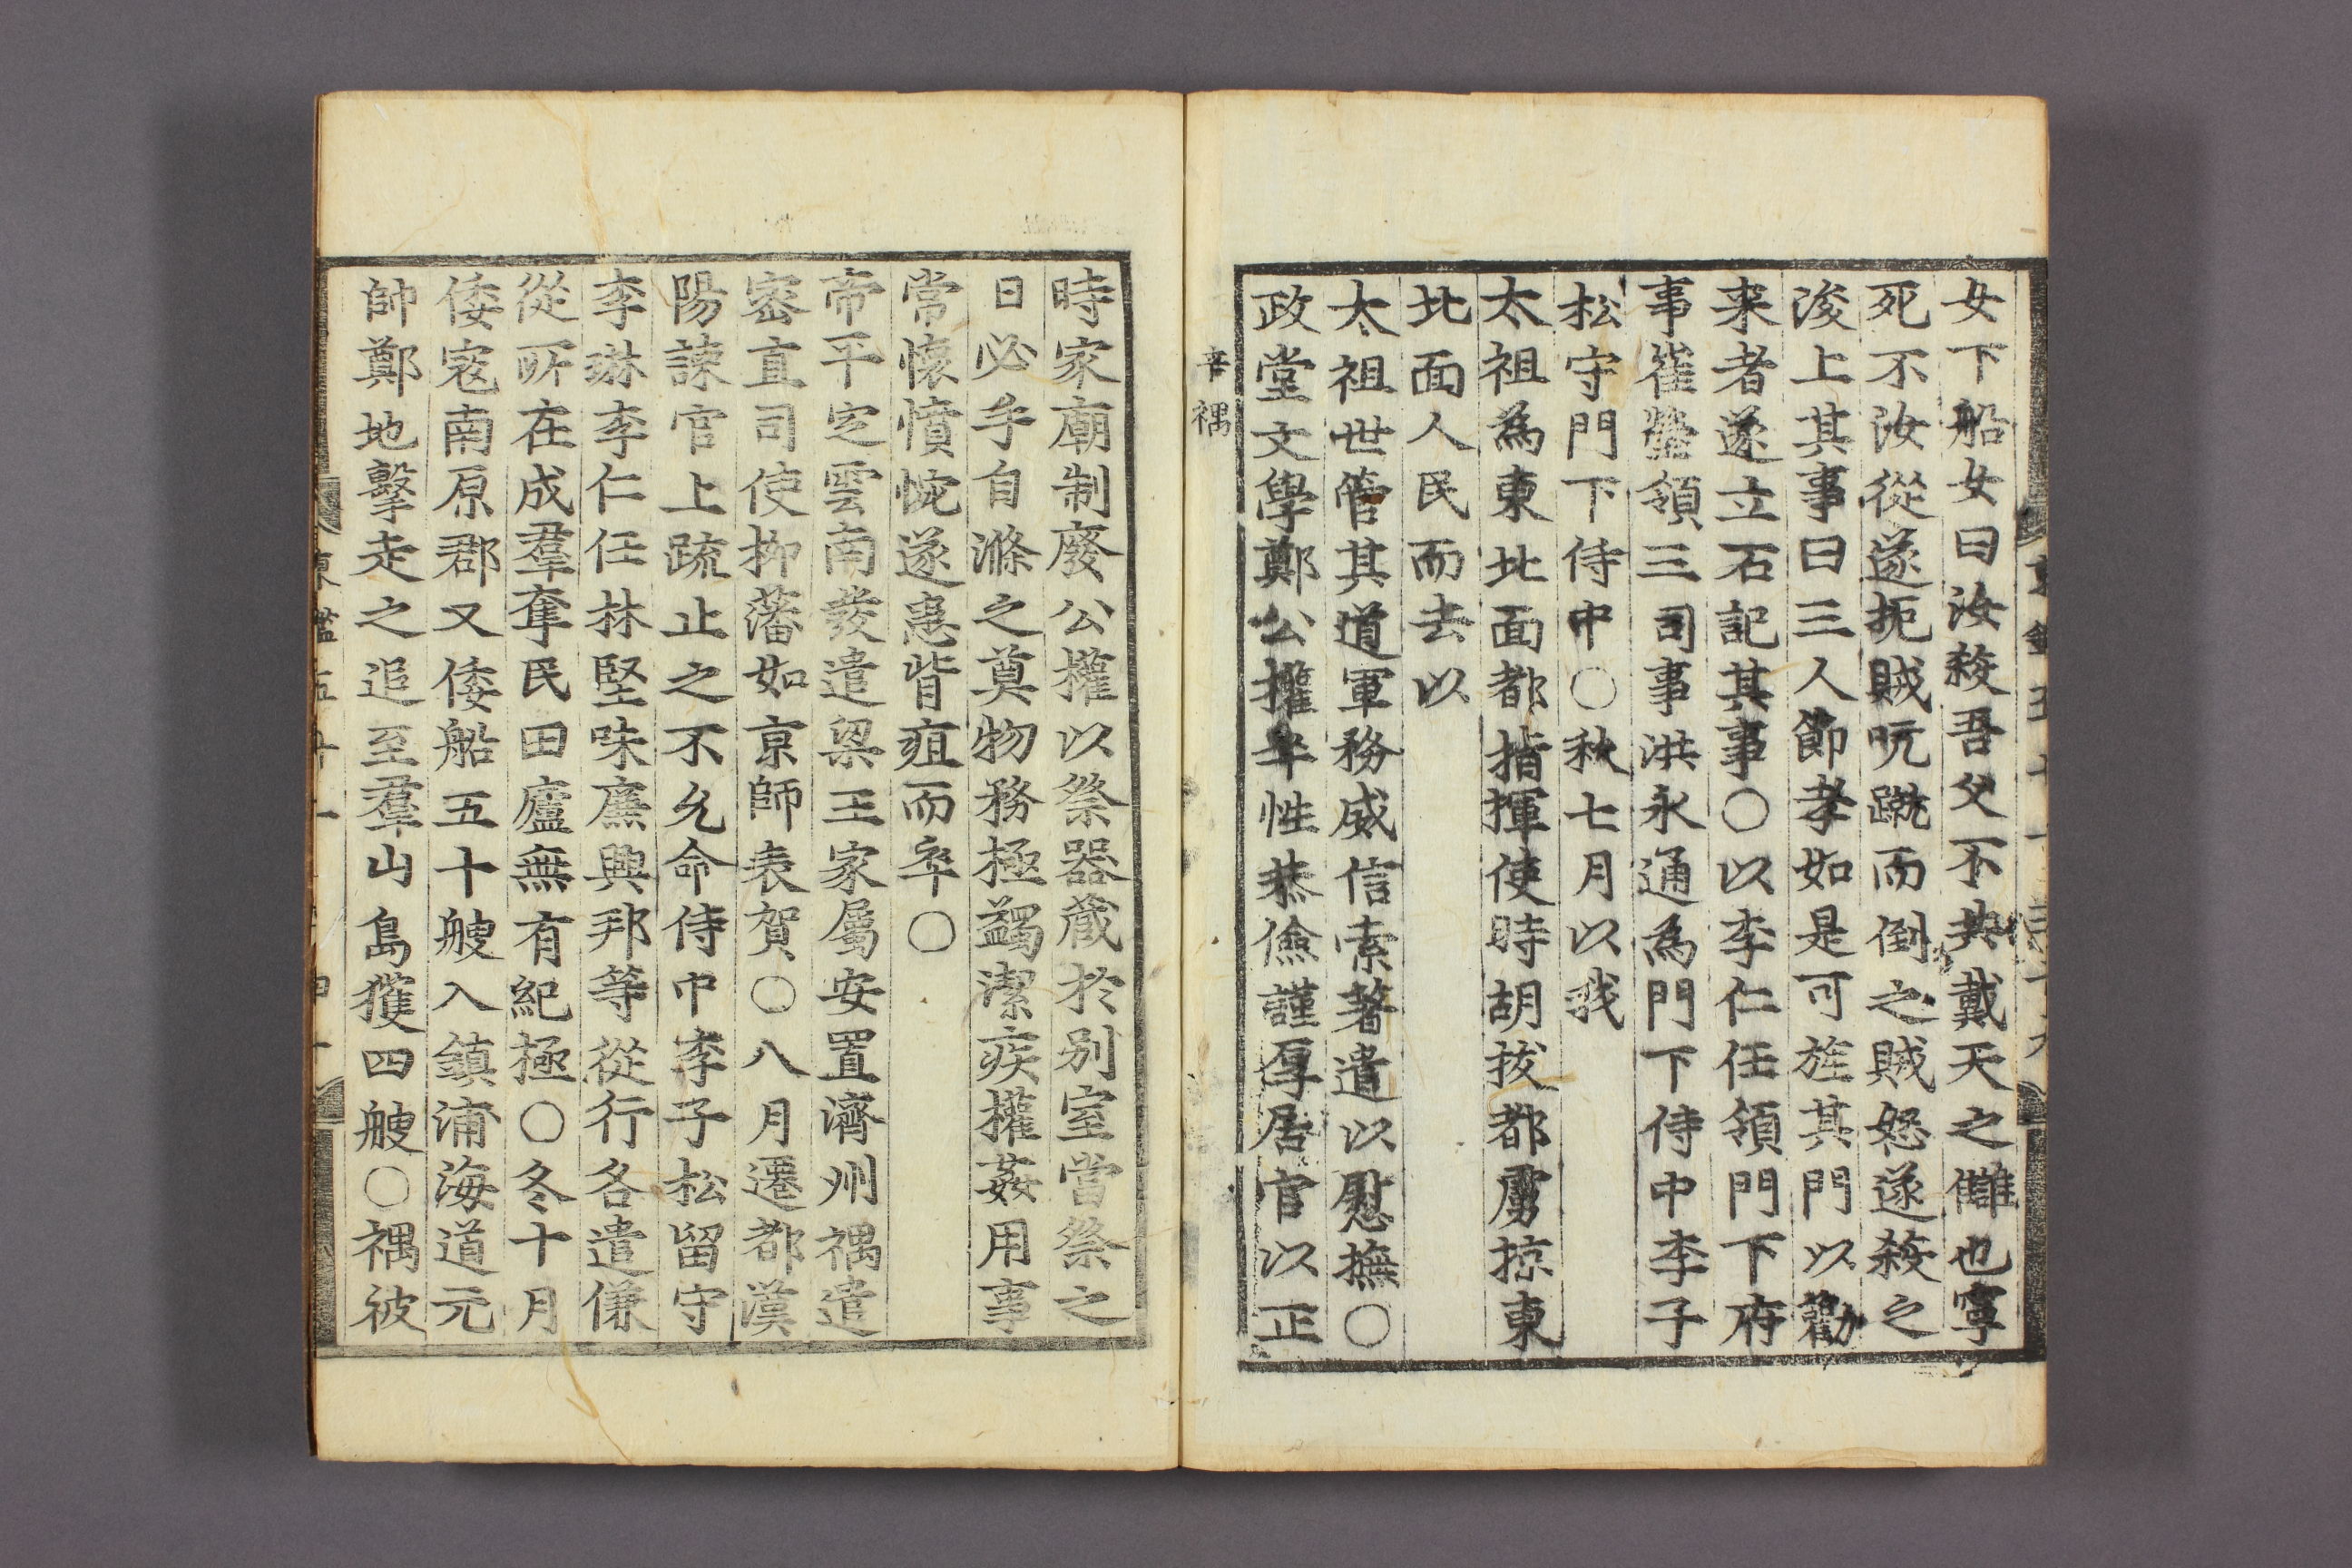 女下船女曰汝殺吾父不共戴天之讎也寧
死不汝從遂扼賊吭蹴而倒之賊怒遂殺之
浚上其事曰三人節孝如是可旌其門以勸
来者遂立石記其事○以李仁任領門下府
事崔瑩領三司事洪永通為門下侍中李子
松守門下侍中○秋七月以我
太祖為東北面都指揮使時胡拔都虜掠東
北面人民而去以
太祖世管其道軍務威信素著遣以慰撫○
政堂文學鄭公權卒性恭儉謹厚居官以正
辛禑
時家廟制廢公權以祭器蔵於别室當祭之
日必手自滌之奠物務極蠲潔疾權姦用事
常懷憤惋遂患背疽而卒○
帝平定雲南發遣梁王家屬安置濟州禑遣
宻直司使柳藩如京師表賀○八月遷都漢
陽諫官上疏止之不允命侍中李子松留守
李琳李仁任林堅味廉興邦等從行各遣傔
從所在成羣奪民田廬無有紀極○冬十月
倭寇南原郡又倭船五十艘入鎮浦海道元
帥鄭地擊走之追至羣山島獲四艘○禑被